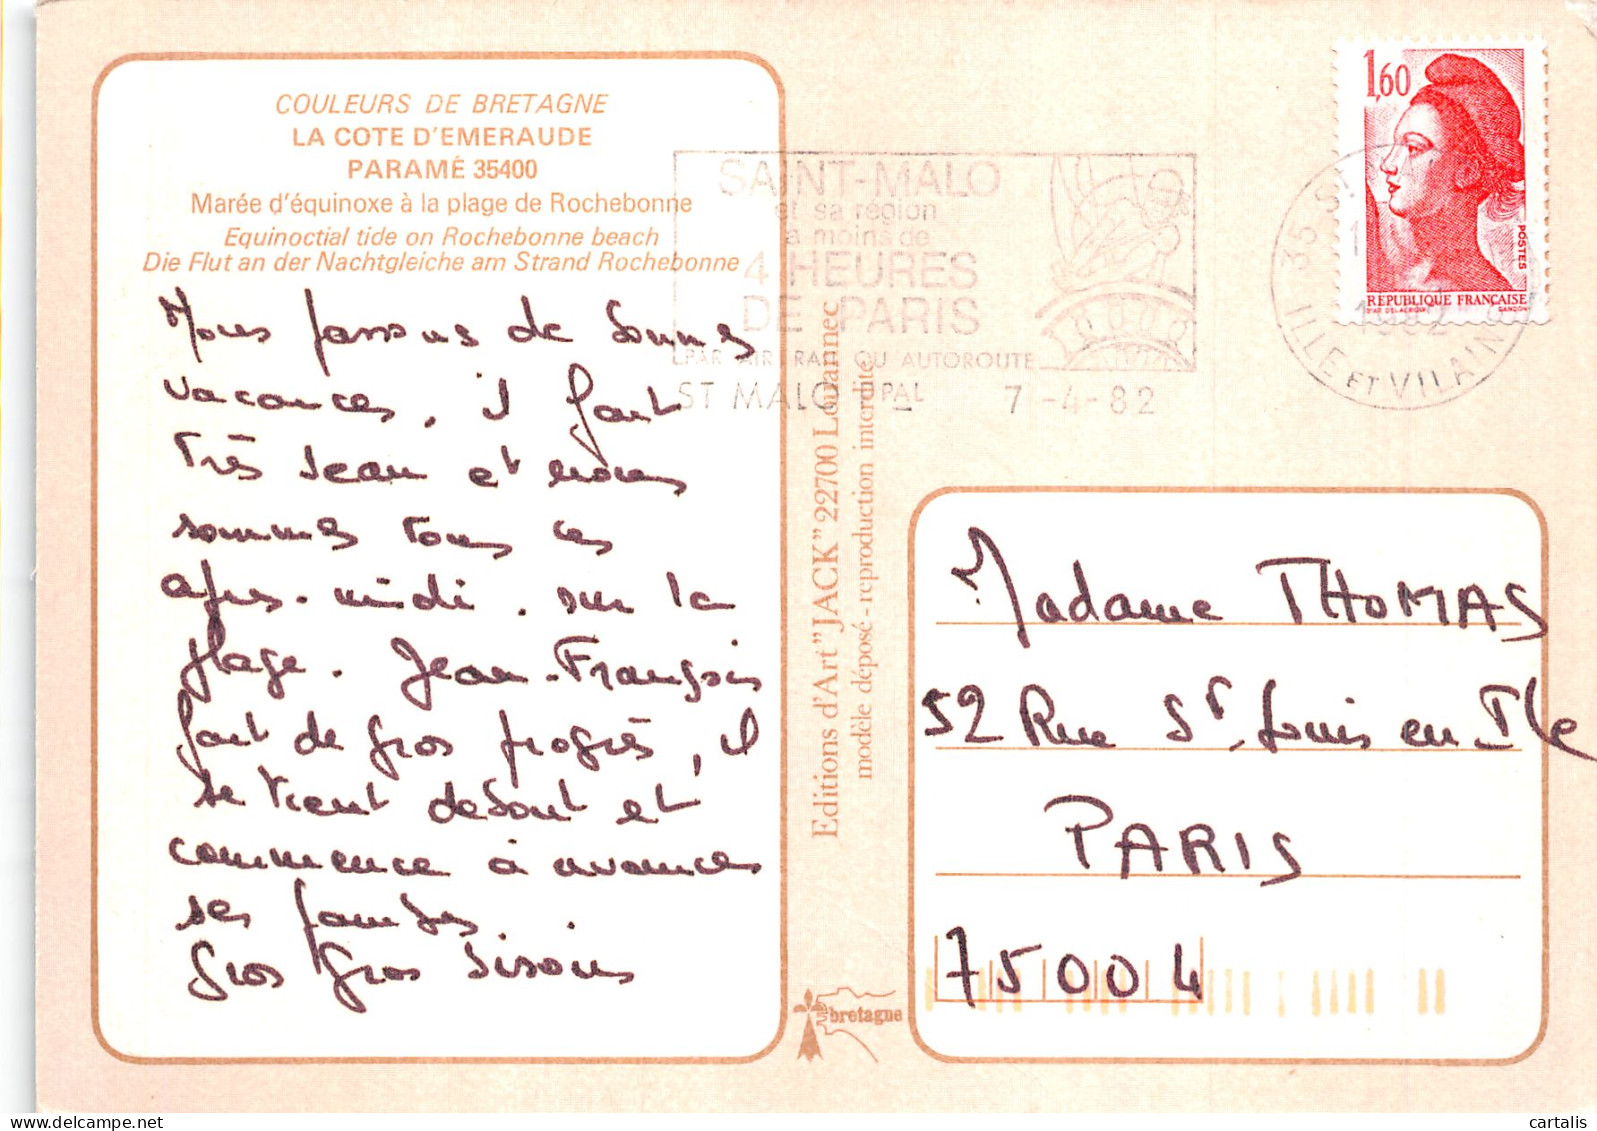 COULEURS DE BRETAGNE
LA COTE D'EMERAUDE
PARAMÉ 35400
Marée d'équinoxe à la plage de Rochebonne
Equinoctial tide on Rochebonne beach
Die Flut an der Nachtgleiche am Strand Rochebonne
Nous passons de bonnes
vacances, il fait
très beau et nous
sommes tous les
après-midi sur la
plage. Jean-François
fait de gros progrès, il
se tient debout et
commence à avancer
ses jambes.
Gros Gros bisous
Editions d'Art "JACK" 22700 Louannec
modèle déposé - reproduction interdite
bretagne
SAINT-MALO
et sa région
à moins de
4 HEURES
DE PARIS
PAR AIR, RAIL OU AUTOROUTE
ST MALO PPAL 7-4-82
35 S
1982
ILLE ET VILAINE
1,60
POSTES
REPUBLIQUE FRANÇAISE
D'AP. DELACROIX GANDON
Madame THOMAS
52 Rue St. Louis en Ile
PARIS
75004
cartalis